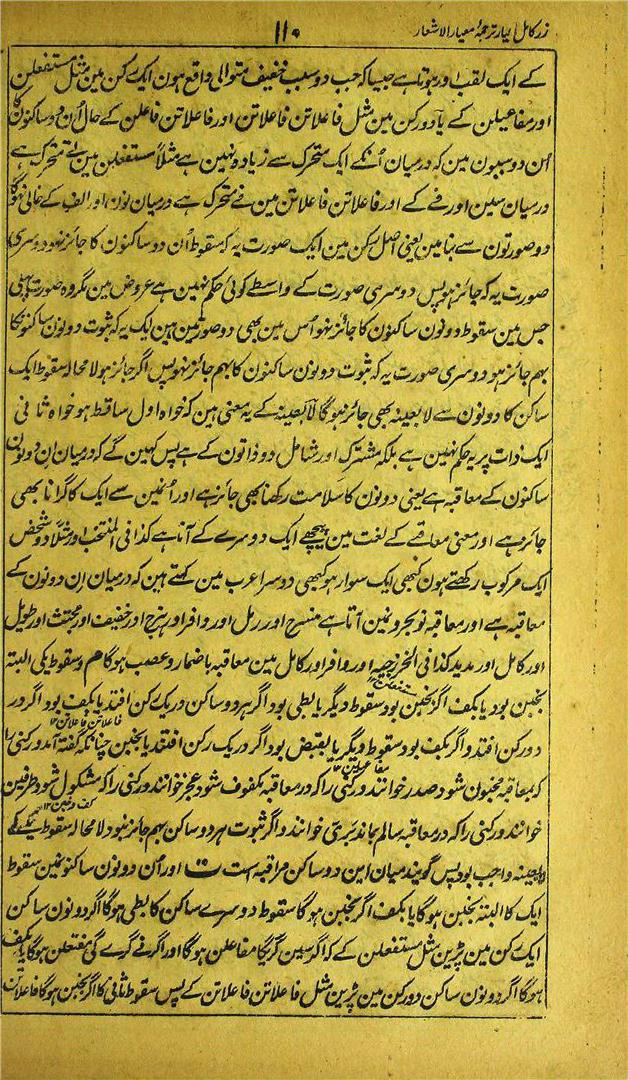 زر کامل عیار ترجمۂ معیار الاشعار
۱۱۰
کے ایک لقب اور ہوتا ہے جیسا کہ جب دو سبب خفیف متوالی واقع ہون ایک رکن مین مثل مستفعلن
اور مفاعیلن کے یا دو رکن مین مثل فاعلاتن فاعلاتن اور فاعلاتن فاعلن کے حال اُن دو ساکنون کا
اُن دو سببون مین کہ درمیان اُنکے ایک متحرک سے زیادہ نہین ہے مثلاً مستفعلن مین تے متحرک ہے
درمیان سین اور فے کے اور فاعلاتن فاعلاتن مین فے متحرک ہے درمیان نون اور الف کے خالی نہوگا
دو صورتون سے بنا مین یعنی اصل رکن مین ایک صورت یہ کہ سقوط اُن دو ساکنون کا جائز نہو دوسری
صورت یہ کہ جائز ہو پس دوسری صورت کے واسطے کوئی حکم نہین ہے عروض مین مگر وہ صورت پہلی
جس مین سقوط دونون ساکنون کا جائز نہو اُس مین بھی دو صورتین ہین ایک یہ کہ ثبوت دونون ساکنونکا
بہم جائز ہو دوسری صورت یہ کہ ثبوت دونون ساکنون کا بہم جائز نہو پس اگر جائز ہو لا محالہ سقوط ایک
ساکن کا دونون سے لا بعینہ بھی جائز ہوگا لا بعینہ کے یہ معنی ہین کہ خواہ اول ساقط ہو خواہ ثانی
ایک ذات پر یہ حکم نہین ہے بلکہ مشترک اور شامل دو ذاتون کے ہے پس کہین گے کہ درمیان اِن دونون
ساکنون کے معاقبہ ہے یعنی دونون کا سلامت رکھنا بھی جائز ہے اور اُنمین سے ایک کا گرانا بھی
جائز ہے اور معنی معاقبے کے لغت مین پیچھے ایک دوسرے کے آنا ہے کذا فی المنتخب ورنہ مثلاً دو شخص
ایک مرکوب رکھتے ہون کبھی ایک سوار ہو کبھی دوسرا عرب مین کہتے ہین کہ درمیان اِن دونون کے
معاقبہ ہے اور معاقبہ نو بحرون مین آتا ہے منسرح اور رمل اور وافر اور ہزج اور خفیف اور مجتث اور طویل
اور کامل اور مدید کذا فی الخزرجیہ اور وافر اور کامل مین معاقبہ باضمار و عصب ہوگا م و سقوط یکی البتہ
بخبن بود یا بکف اگر بخبن بود سقوط دیگر یا بطی بود اگر ہر دو ساکن در یک رکن افتد یا بکف بود اگر در
دو رکن افتد و اگر بکف بود سقوط دیگر یا بقبض بود اگر در یک رکن افتد یا بخبن چنانکہ گفتہ آمد و رکنی را
کہ بمعاقبہ مخبون شود صدر خوانند و رکنی را کہ در معاقبہ مکفوف شود عجز خوانند و رکنی را کہ مشکول شود طرفین
خوانند و رکنی را کہ در معاقبہ سالم بماند بری خوانند و اگر ثبوت ہر دو ساکن بہم جائز نبود لا محالہ سقوط یکے
لا بعینہ واجب بود پس گویند میان این دو ساکن مراقبہ است ت اور اُن دونون ساکنونمین سقوط
ایک کا البتہ بخبن ہوگا یا بکف اگر بخبن ہوگا سقوط دوسرے ساکن کا بطی ہوگا اگر دونون ساکن
ایک رکن مین پڑین مثل مستفعلن کے کہ اگر سین گریگا مفاعلن ہوگا اور اگر فے گرے گی مفتعلن ہوگا یا بکف
ہوگا اگر دونون ساکن دو رکن مین پڑین مثل فاعلاتن فاعلاتن کے پس سقوط ثانی کا اگر بخبن ہوگا فاعلاتن